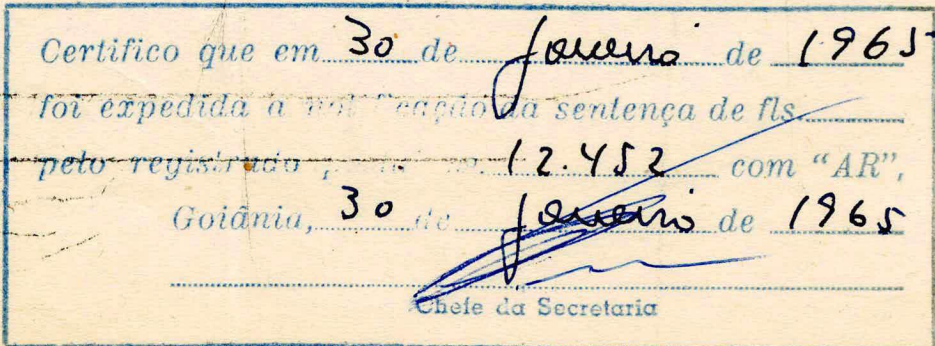 Certifico que em 30 de Janeiro de 1965
foi expedida a notificação da sentença de fls.
pelo registrado 12.452 com "AR",
Goiânia, 30 de Janeiro de 1965
Chefe da Secretaria